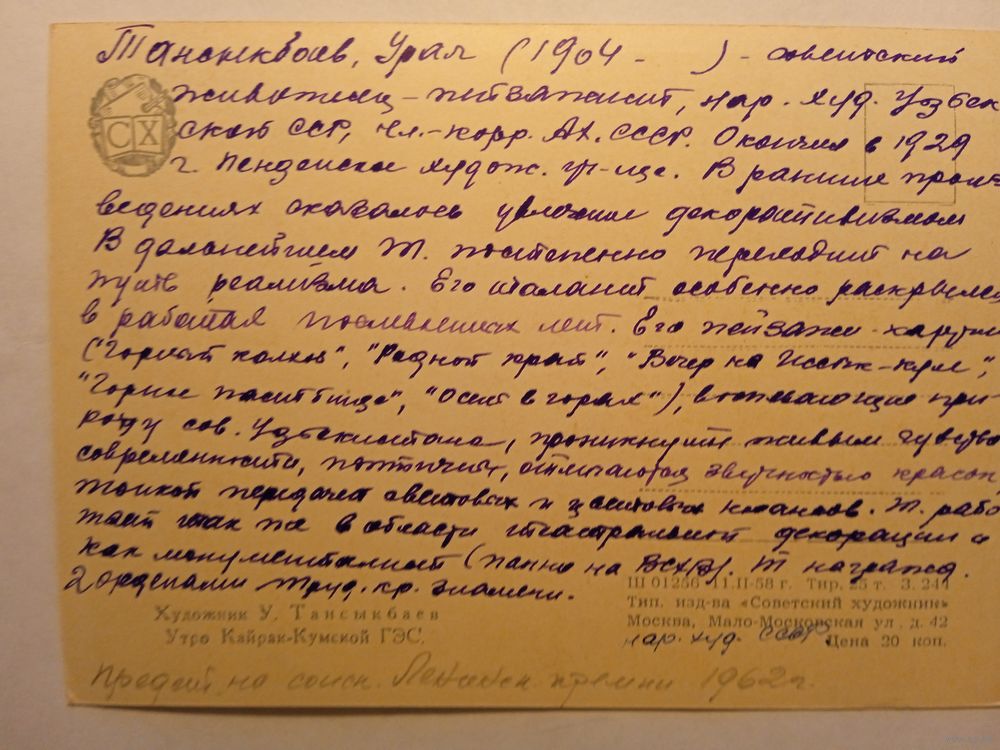 Тансыкбаев, Урал (1904 - ) - советский
живописец - пейзажист, нар. худ. Узбек-
ской ССР, чл.-корр. АХ. СССР. Окончил в 1929
г. Пензенское худож. уч-ще. В ранних произ-
СХ
ведениях сказалось увлечение декоративизмом
В дальнейшем Т. постепенно переходит на
путь реализма. Его талант особенно раскрылся
в работах последних лет. Его пейзажи-картины
("Горный колхоз", "Родной край", "Вечер на Иссык-куле",
"Горное пастбище", "Осень в горах"), воспевающие при-
роду сов. Узбекистана, проникнуты живым чувством
современности, поэтичны, отличаются звучностью красок
тонкой передачей световых и цветовых нюансов. Т. рабо-
тает так же в области театральной декорации и
как монументалист (панно на ВСХВ). Т награжд.
2 орденами Труд. кр. знамени.
Ш 01256 11.II-58 г. Тир. 25 т. З. 244
Художник У. Тансыкбаев
Тип. изд-ва «Советский художник»
Утро Кайрак-Кумской ГЭС.
Москва, Мало-Московская ул. д. 42
нар. худ. СССР
Цена 20 коп.
на соиск. Ленинск. премии 1962 г.